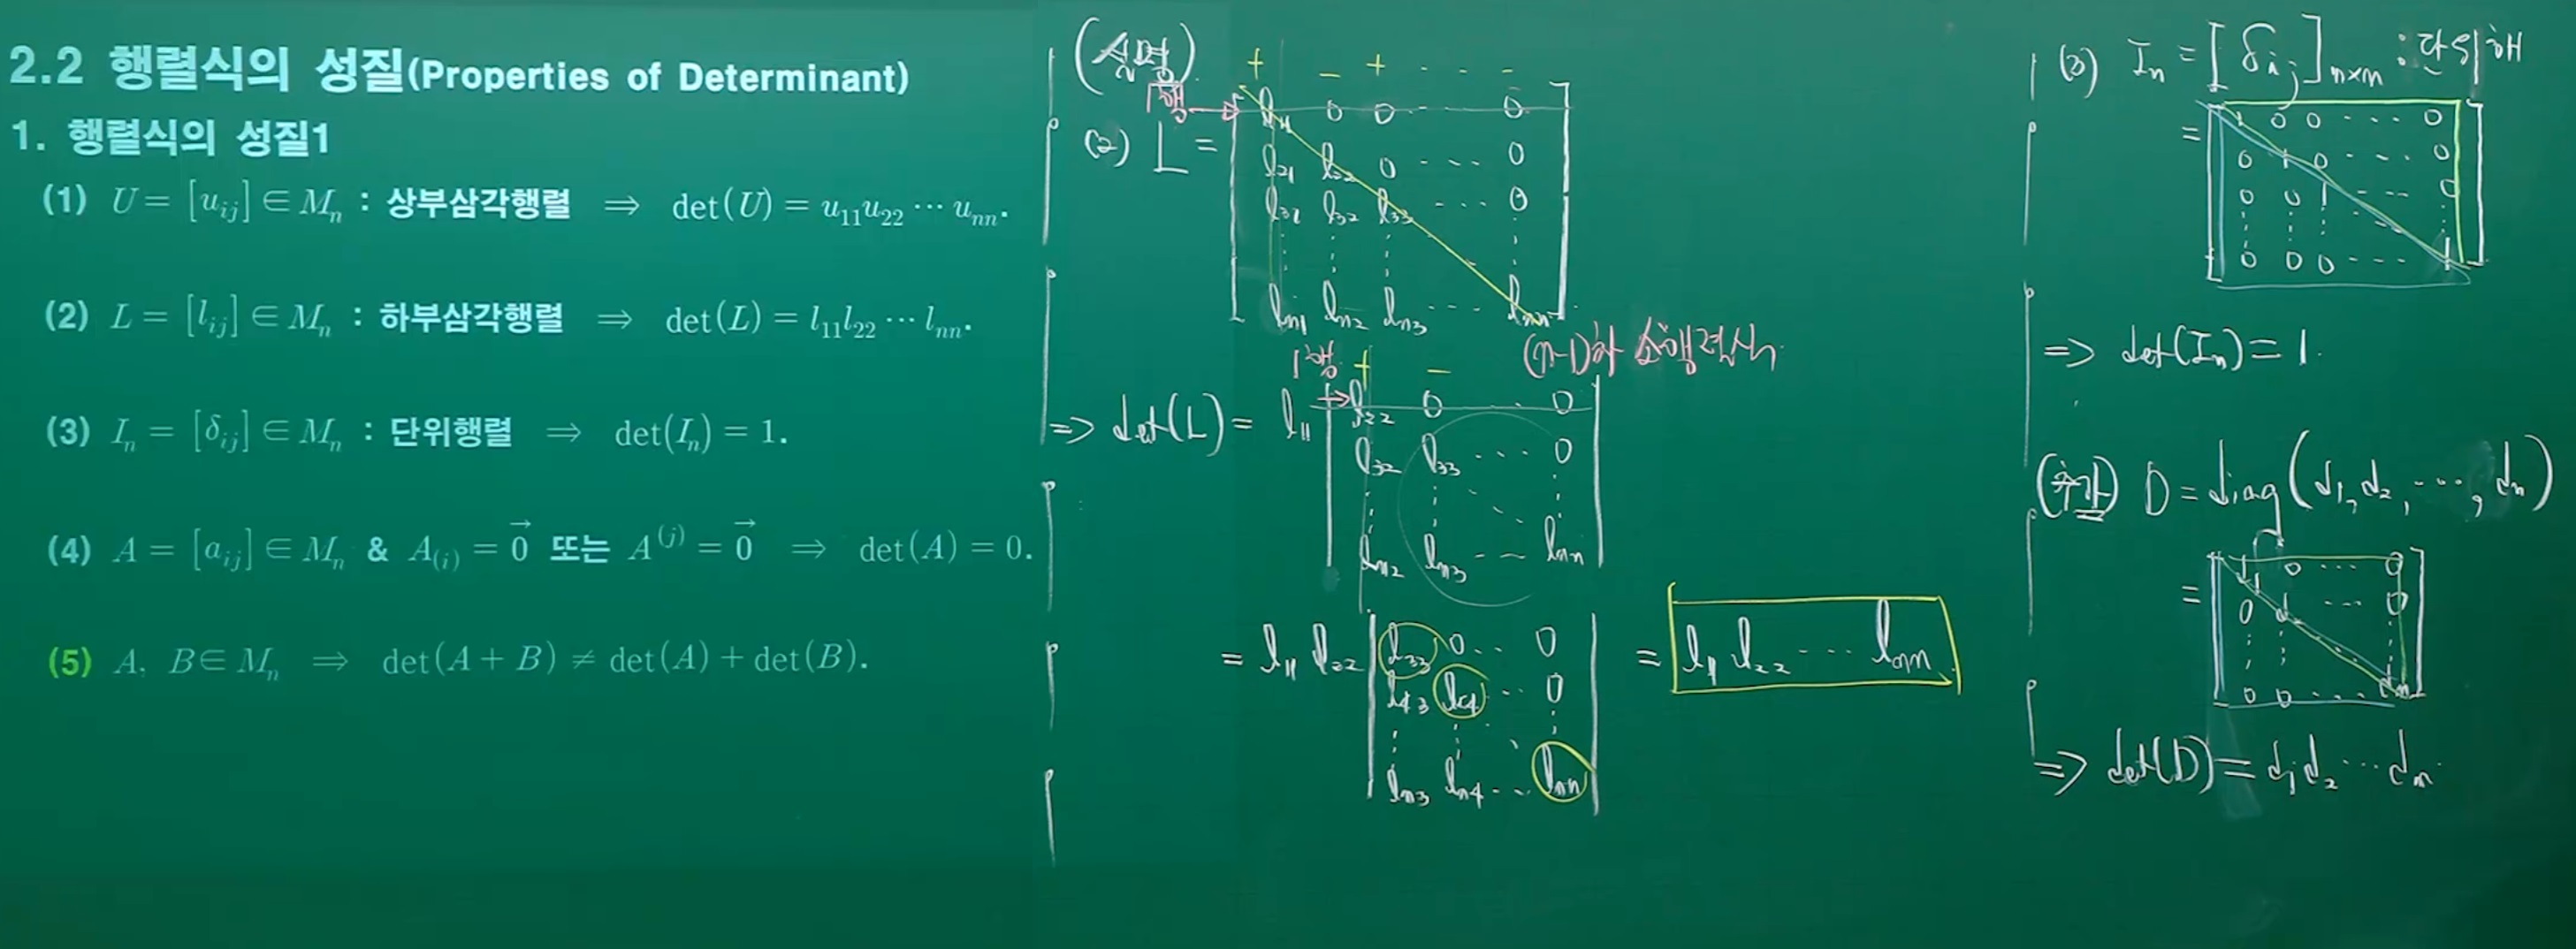 2.2 행렬식의 성질(Properties of Determinant)
1. 행렬식의 성질1
(1) U = [u_{ij}] ∈ M_n : 상부삼각행렬 ⇒ det(U) = u_{11}u_{22} ⋯ u_{nn}.
(2) L = [l_{ij}] ∈ M_n : 하부삼각행렬 ⇒ det(L) = l_{11}l_{22} ⋯ l_{nn}.
(3) I_n = [δ_{ij}] ∈ M_n : 단위행렬 ⇒ det(I_n) = 1.
(4) A = [a_{ij}] ∈ M_n & A_{(i)} = \vec{0} 또는 A^{(j)} = \vec{0} ⇒ det(A) = 0.
(5) A, B ∈ M_n ⇒ det(A + B) ≠ det(A) + det(B).
(설명)
+ - + · · · -
1행 →
(2) L =
l_{11} 0 0 ⋯ 0
l_{21} l_{22} 0 ⋯ 0
l_{31} l_{32} l_{33} ⋯ 0
⋮ ⋮ ⋮ ⋮
l_{n1} l_{n2} l_{n3} ⋯ l_{nn}
(n-1)차 소행렬식
1행 + -
⇒ det(L) = l_{11}
→ l_{22} 0 ⋯ 0
l_{32} l_{33} ⋯ 0
⋮ ⋮ ⋱
l_{n2} l_{n3} ⋯ l_{nn}
= l_{11} l_{22}
l_{33} 0 ⋯ 0
l_{43} l_{44} ⋯ 0
⋮ ⋮ ⋱ ⋮
l_{n3} l_{n4} ⋯ l_{nn}
= l_{11} l_{22} ⋯ l_{nn}
(3) I_n = [δ_{ij}]_{n×n} : 단위행
=
1 0 0 ⋯ 0
0 1 0 ⋯ 0
0 0 1 ⋯ 0
⋮ ⋮ ⋮ ⋱ ⋮
0 0 0 ⋯ 1
⇒ det(I_n) = 1.
(추가) D = diag(d_1, d_2, ⋯, d_n)
=
d_1 0 ⋯ 0
0 d_2 ⋯ 0
⋮ ⋮ ⋱
0 0 ⋯ d_n
⇒ det(D) = d_1 d_2 ⋯ d_n.